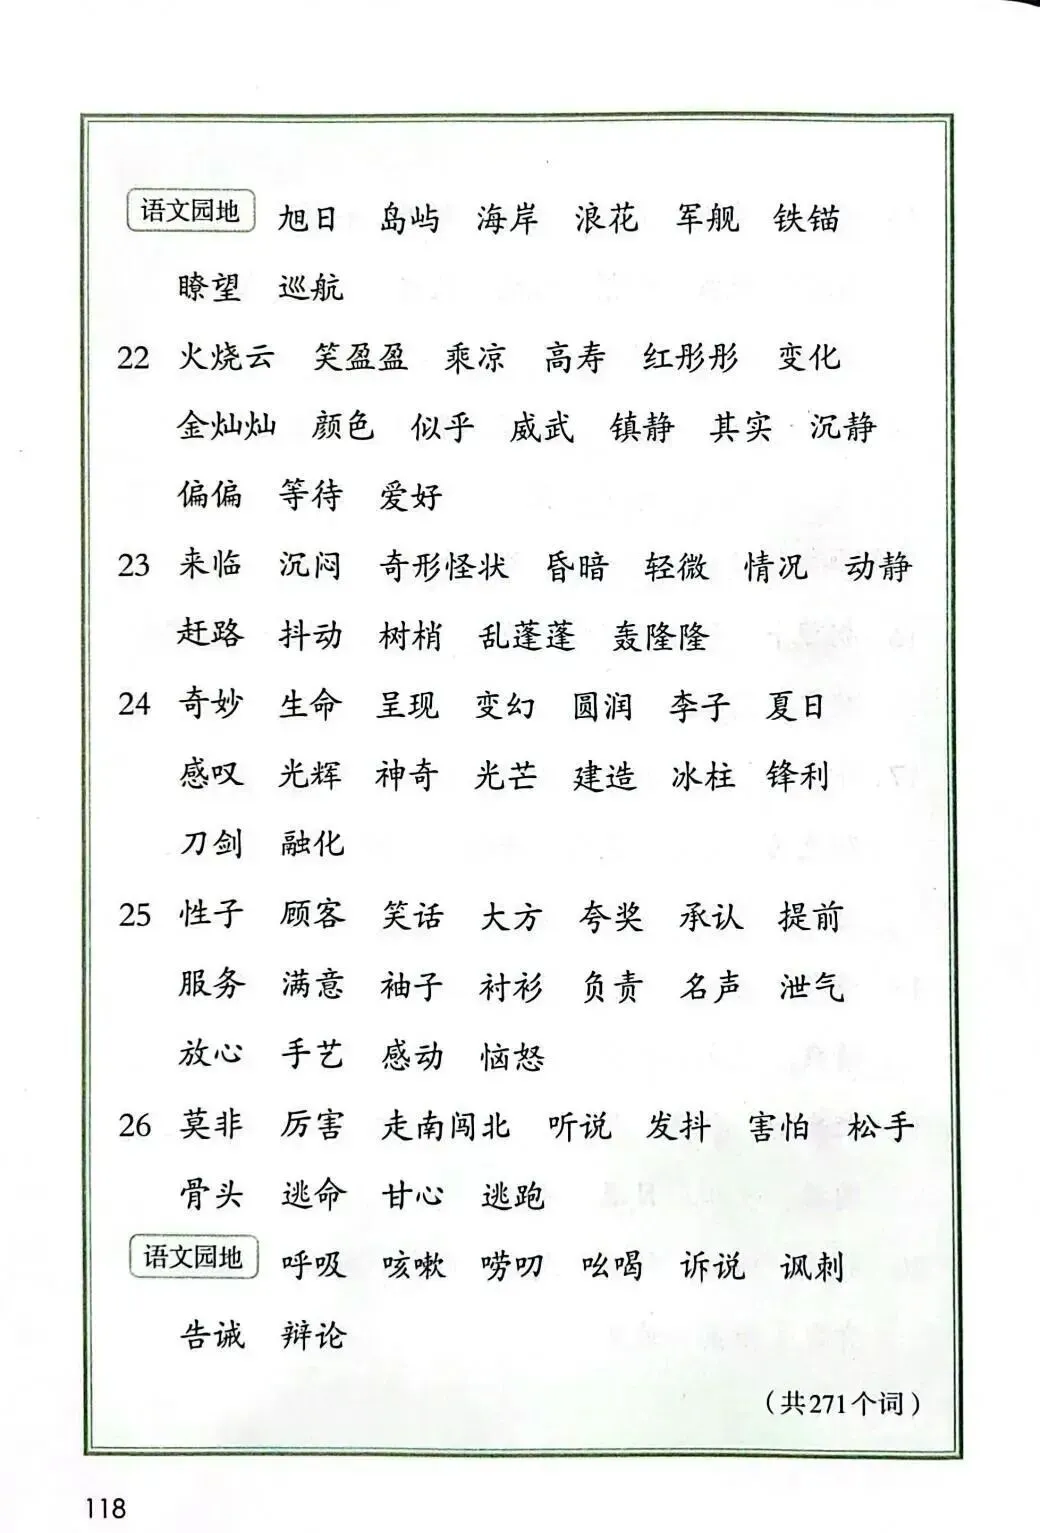 语文园地 旭日 岛屿 海岸 浪花 军舰 铁锚
瞭望 巡航
22 火烧云 笑盈盈 乘凉 高寿 红彤彤 变化
金灿灿 颜色 似乎 威武 镇静 其实 沉静
偏偏 等待 爱好
23 来临 沉闷 奇形怪状 昏暗 轻微 情况 动静
赶路 抖动 树梢 乱蓬蓬 轰隆隆
24 奇妙 生命 呈现 变幻 圆润 李子 夏日
感叹 光辉 神奇 光芒 建造 冰柱 锋利
刀剑 融化
25 性子 顾客 笑话 大方 夸奖 承认 提前
服务 满意 袖子 衬衫 负责 名声 泄气
放心 手艺 感动 恼怒
26 莫非 厉害 走南闯北 听说 发抖 害怕 松手
骨头 逃命 甘心 逃跑
语文园地 呼吸 咳嗽 唠叨 吆喝 诉说 讽刺
告诫 辩论
（共271个词）
118